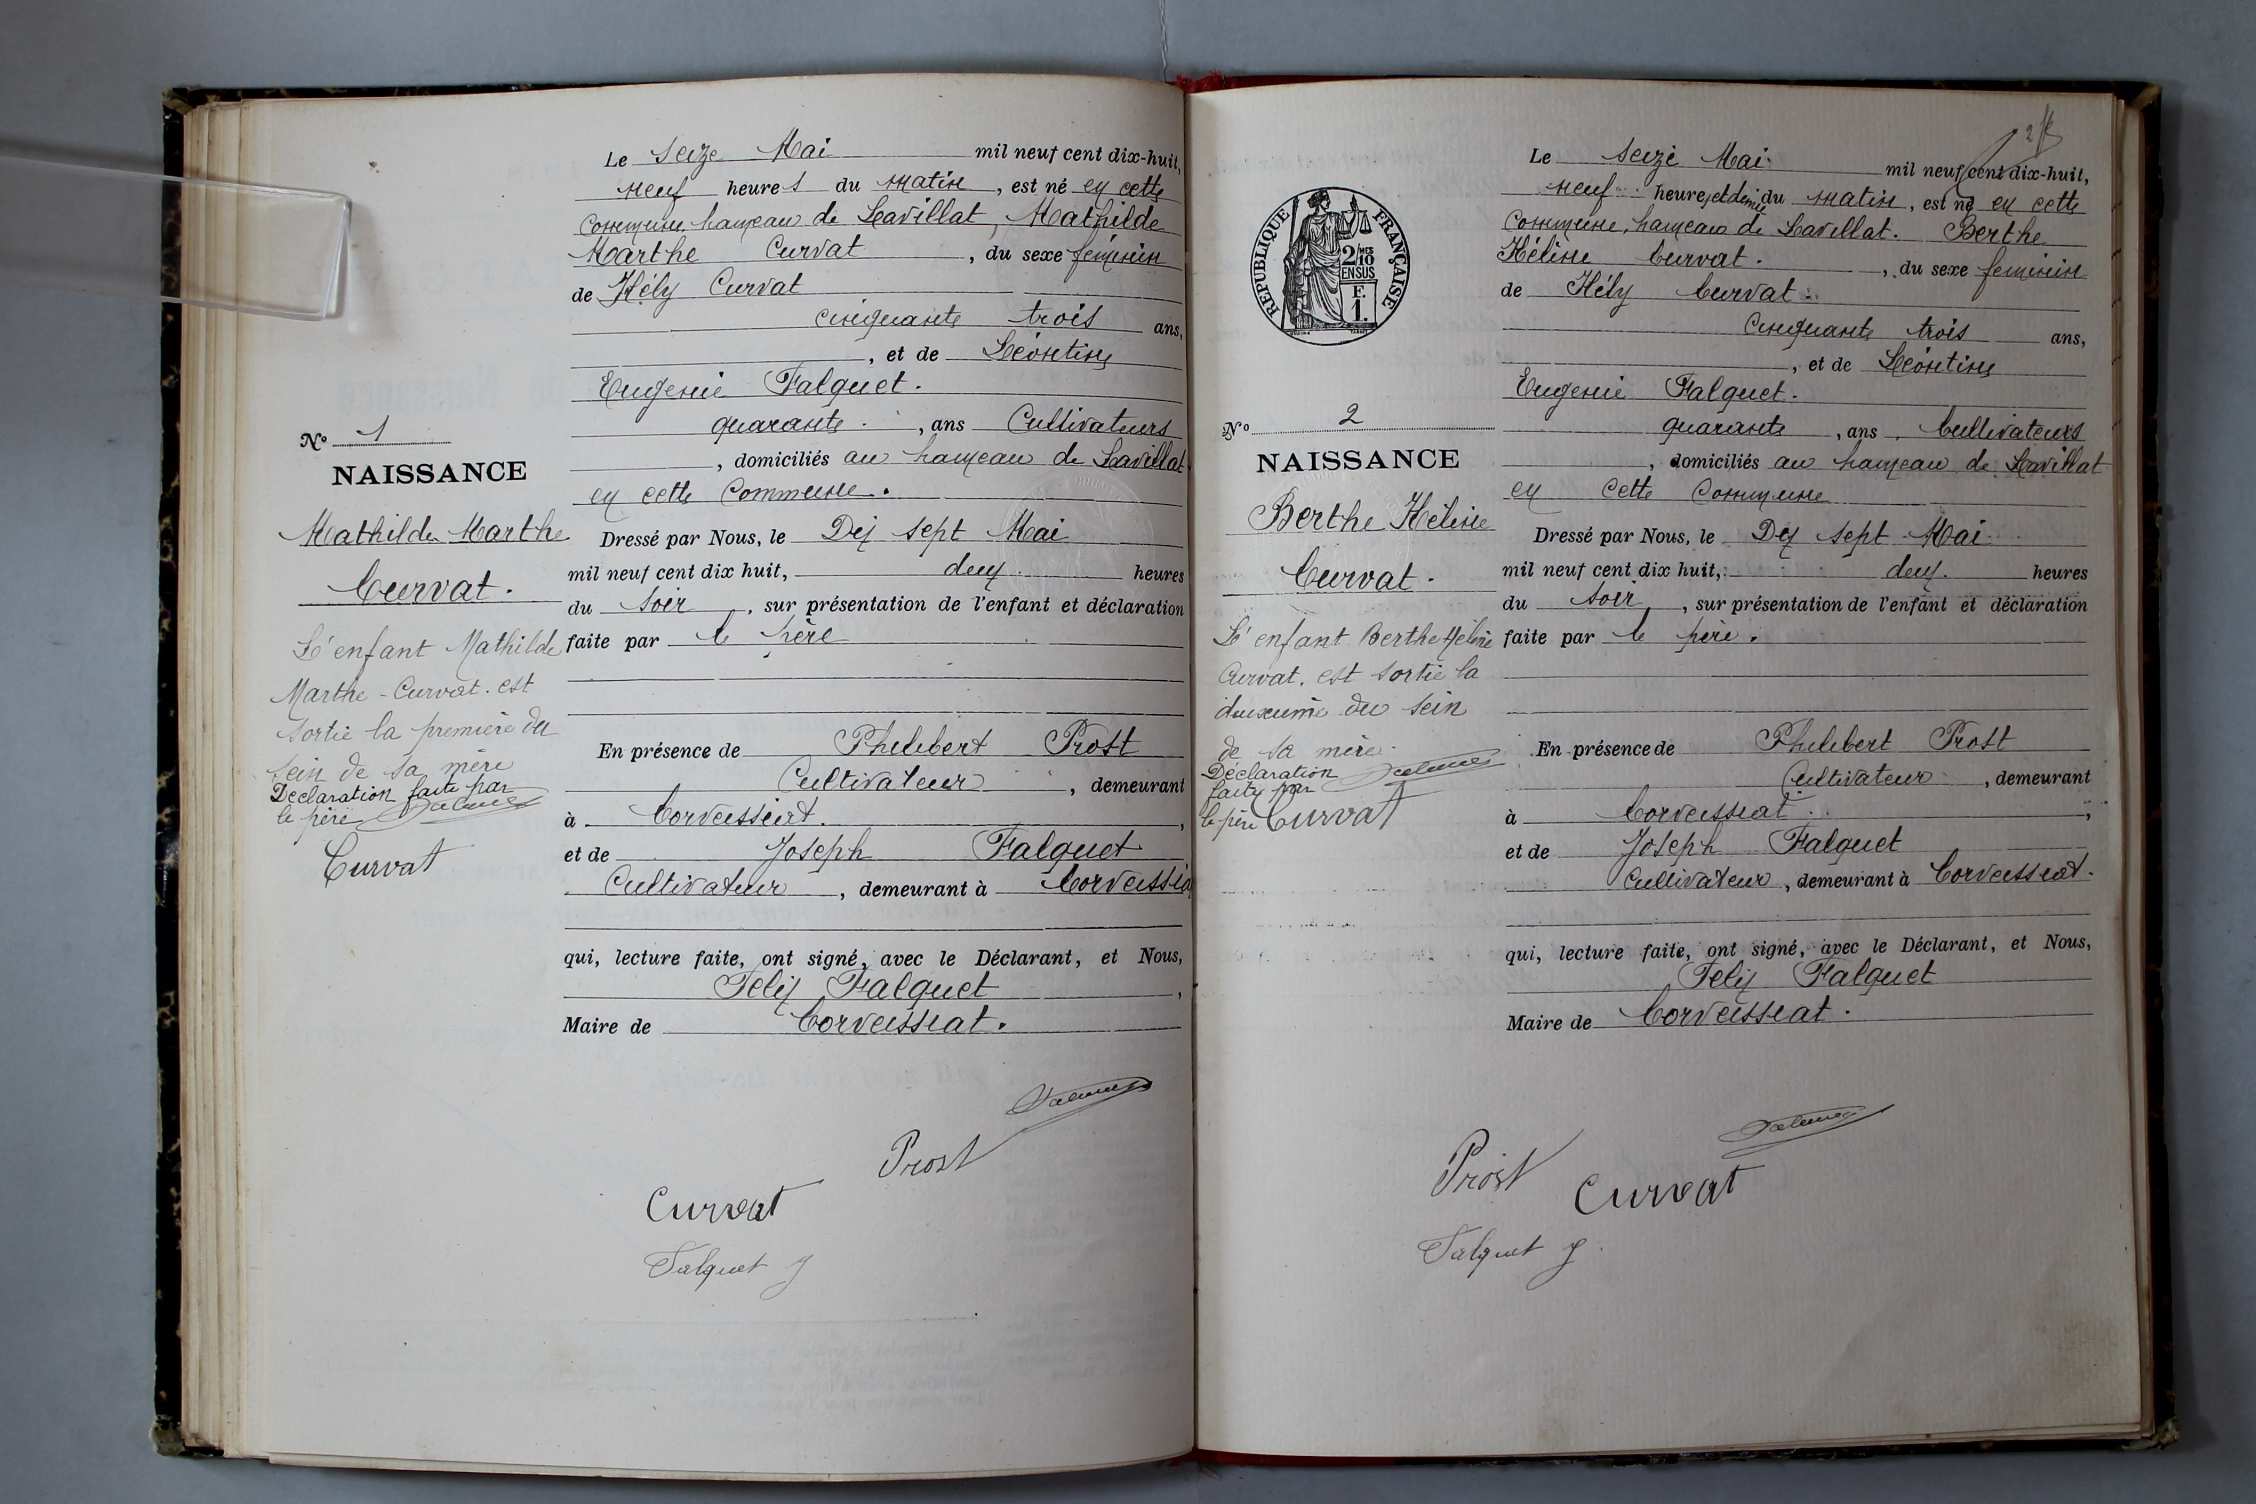 Le seize Mai mil neuf cent dix-huit,
neuf heures du matin, est né en cette
Commune hameau de Lavillat, Mathilde
Marthe Curvat, du sexe féminin
de Hély Curvat
cinquante trois ans,
, et de Léontine
Eugenie Falquet.
quarante, ans Cultivateurs
, domiciliés au hameau de Lavillat
en cette Commune.
No 1
NAISSANCE
Mathilde Marthe
Curvat.
L'enfant Mathilde
Marthe - Curvat. est
sortie la première du
sein de sa mère
Déclaration faite par
le père
Curvat
Dressé par Nous, le Dix sept Mai
mil neuf cent dix huit, deux heures
du soir, sur présentation de l'enfant et déclaration
faite par le père
En présence de Philibert Prost
Cultivateur, demeurant
à Corveissiat.,
et de Joseph Falquet
Cultivateur, demeurant à Corveissia
qui, lecture faite, ont signé, avec le Déclarant, et Nous,
Felix Falquet,
Maire de Corveissiat.
Prost
Curvat
Falquet J
2
Le seize Mai mil neuf cent dix-huit,
neuf heures et demie du matin, est né en cette
Commune, hameau de Lavillat. Berthe
Hélène Curvat., du sexe feminin
de Hély Curvat
Cinquante trois ans,
, et de Léontine
Eugenie Falquet.
quarante, ans. Cultivateurs
, domiciliés au hameau de Lavillat
en cette Commune
RÉPUBLIQUE FRANÇAISE
2/10 MES
EN SUS
F.
1.
No 2
NAISSANCE
Berthe Hélène
Curvat.
L'enfant Berthe Hélène
Curvat. est sortie la
deuxième du sein
de sa mère.
Déclaration
faite par
le père Curvat
Dressé par Nous, le Dix sept Mai
mil neuf cent dix huit, deux heures
du soir, sur présentation de l'enfant et déclaration
faite par le père.
En présence de Philibert Prost
Cultivateur, demeurant
à Corveissiat,
et de Joseph Falquet
Cultivateur, demeurant à Corveissiat.
qui, lecture faite, ont signé, avec le Déclarant, et Nous,
Felix Falquet
Maire de Corveissiat.
Prost Curvat
Falquet J.